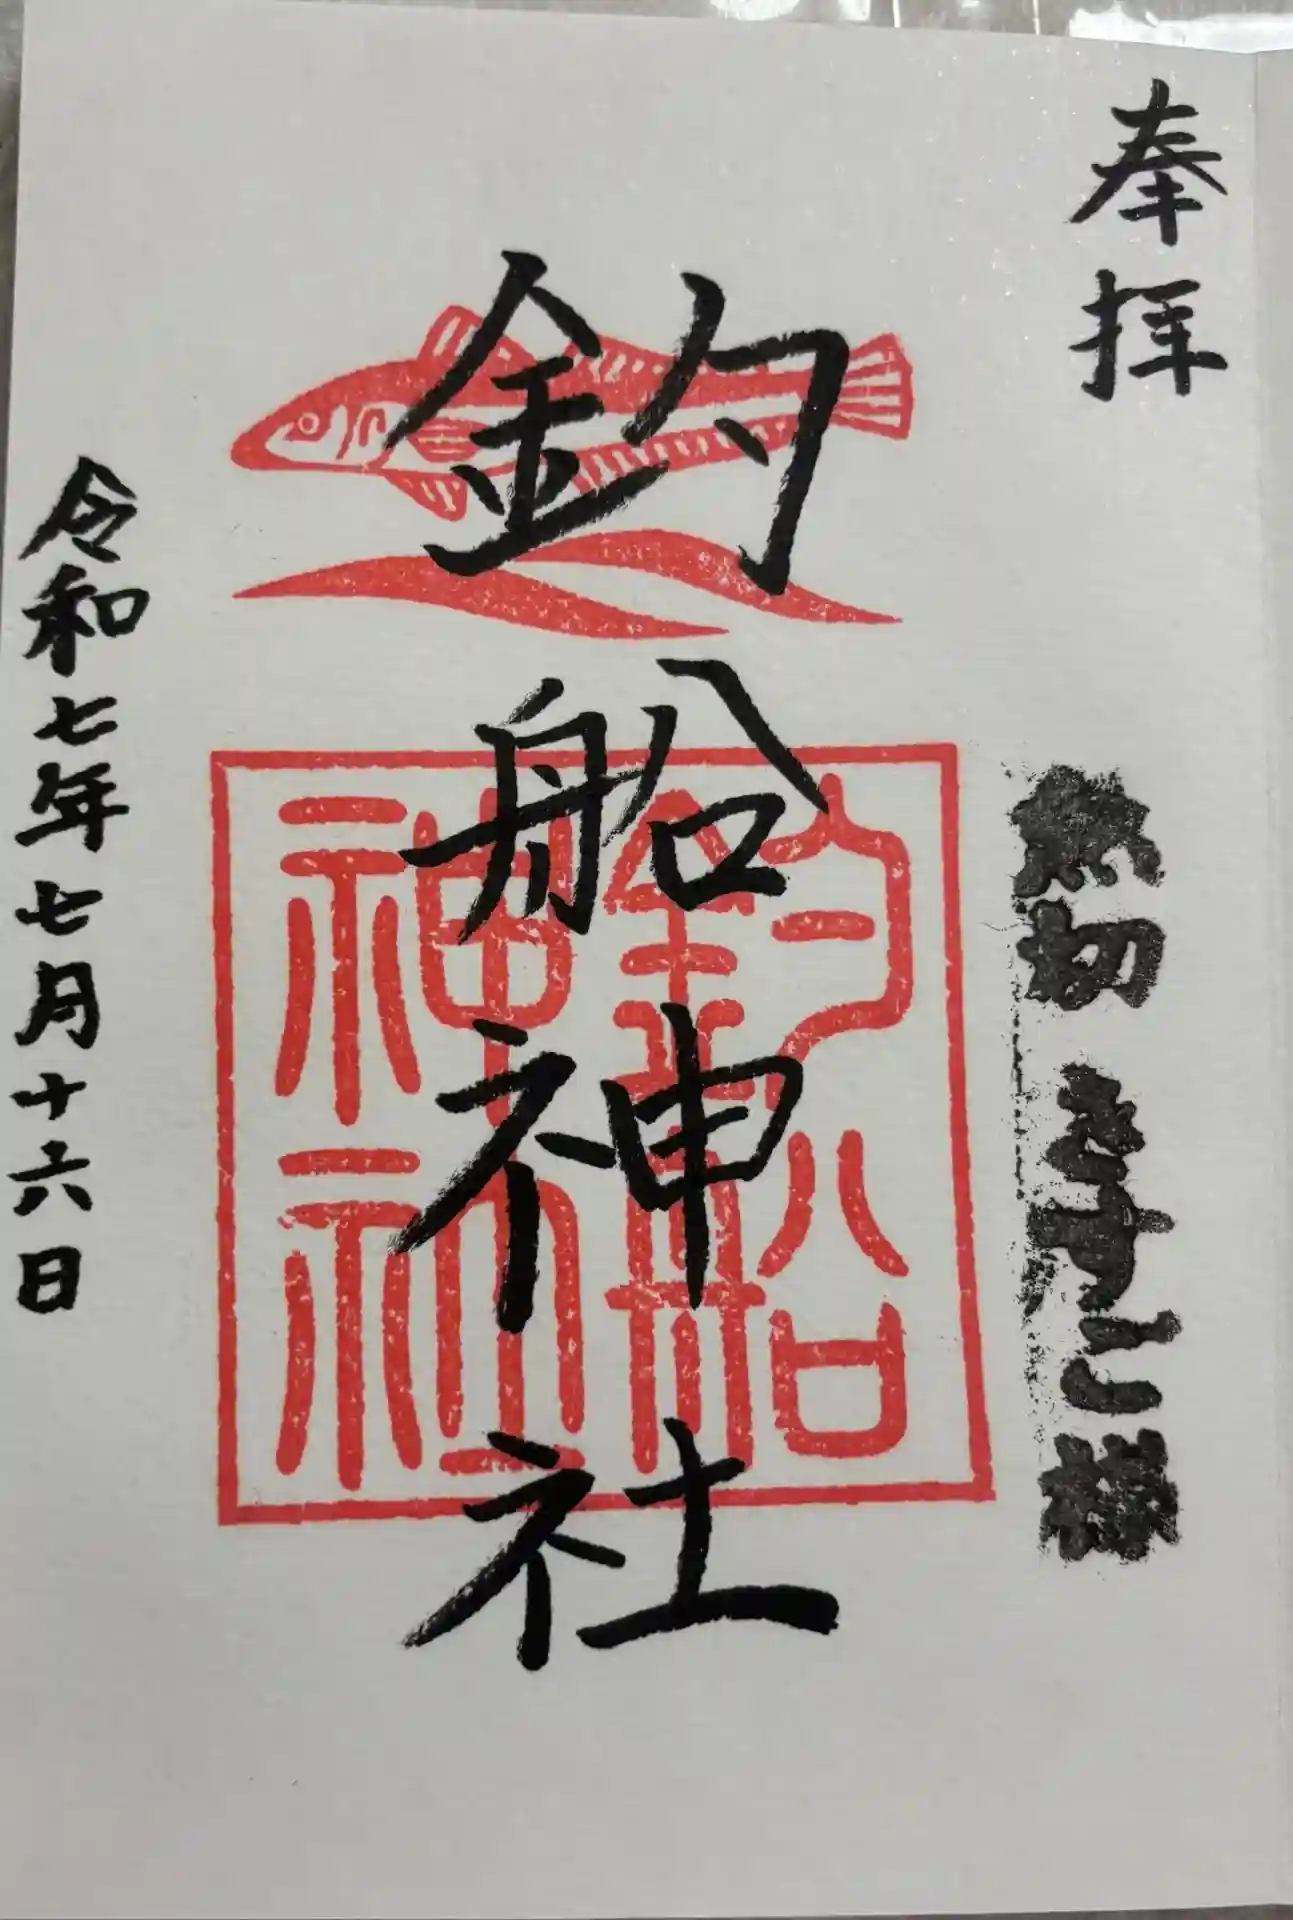 奉拝
切 きすご様
釣船神社
釣船
神社
令和七年七月十六日